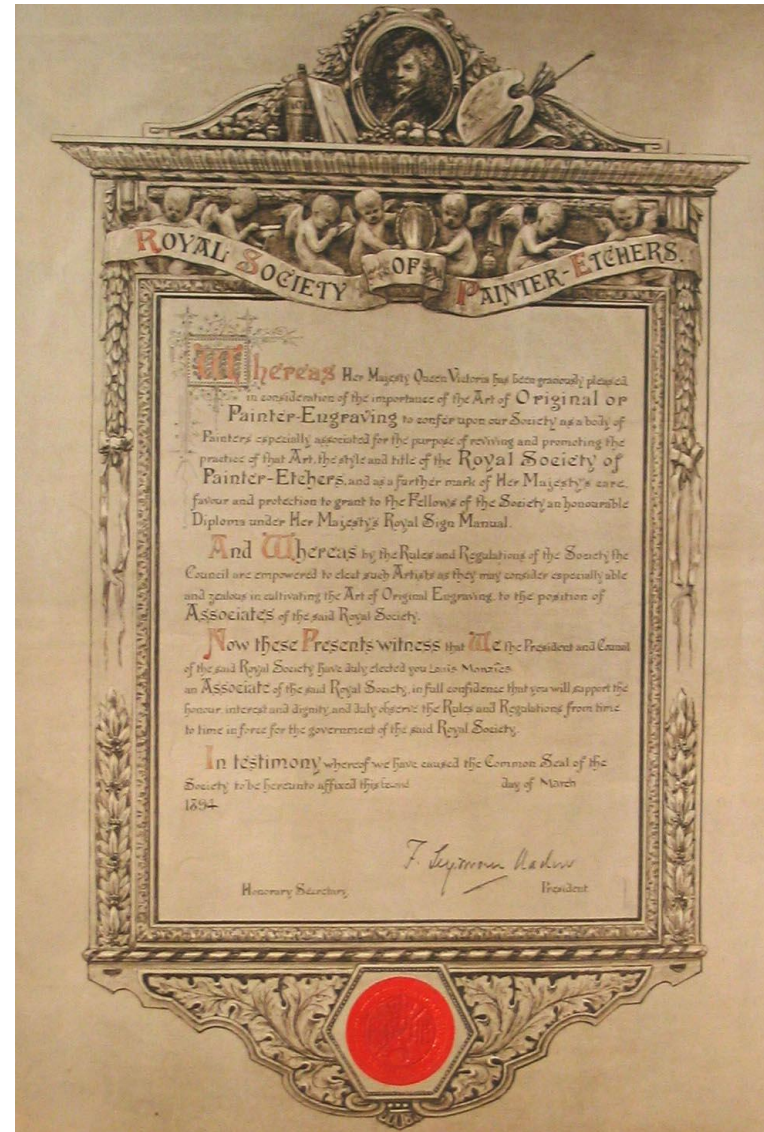 ROYAL SOCIETY OF PAINTER-ETCHERS.
Whereas Her Majesty Queen Victoria has been graciously pleased,
in consideration of the importance of the Art of Original or
Painter-Engraving to confer upon our Society as a body of
Painters especially associated for the purpose of reviving and promoting the
practice of that Art, the style and title of the Royal Society of
Painter-Etchers, and as a further mark of Her Majesty's care,
favour and protection to grant to the Fellows of the Society an honourable
Diploma under Her Majesty's Royal Sign Manual.
And Whereas by the Rules and Regulations of the Society the
Council are empowered to elect such Artists as they may consider especially able
and zealous in cultivating the Art of Original Engraving, to the position of
Associates of the said Royal Society.
Now these Presents witness that We the President and Council
of the said Royal Society have duly elected you Louis Monziès
an Associate of the said Royal Society, in full confidence that you will support the
honour interest and dignity, and duly observe the Rules and Regulations from time
to time in force for the government of the said Royal Society.
In testimony whereof we have caused the Common Seal of the
Society to be hereunto affixed this day of March
1894
F. Seymour Haden
Honorary Secretary President